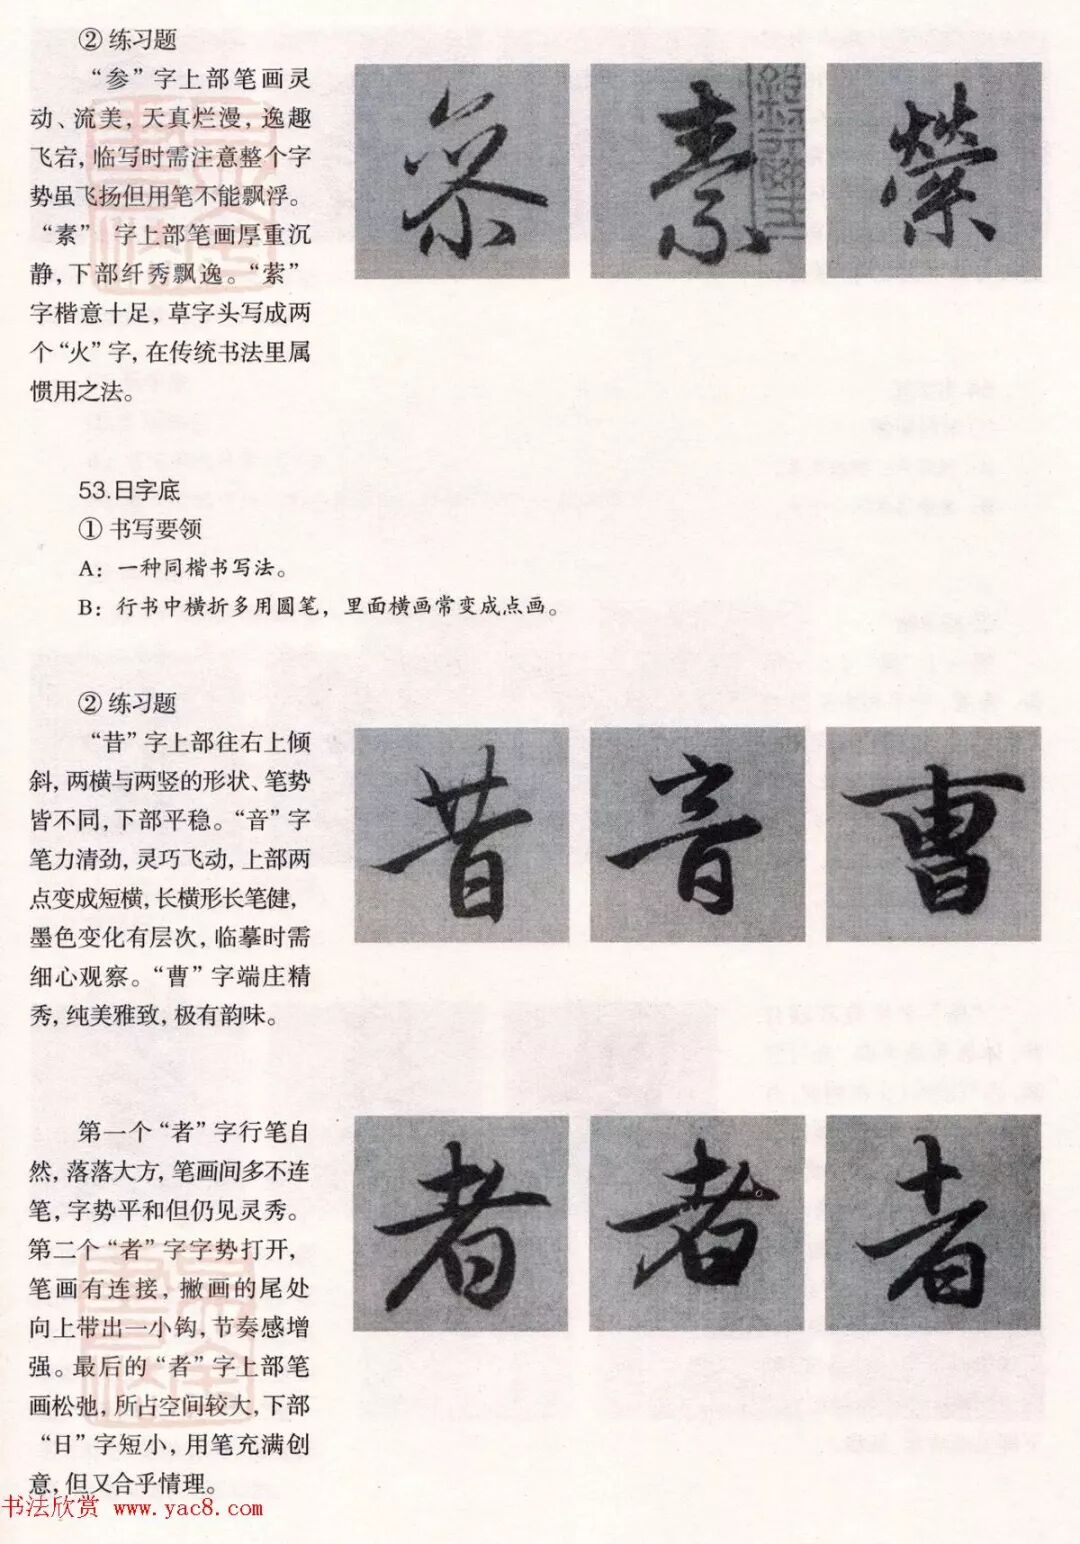 ② 练习题
“参”字上部笔画灵
动、流美，天真烂漫，逸趣
飞宕，临写时需注意整个字
势虽飞扬但用笔不能飘浮。
“素” 字上部笔画厚重沉
静，下部纤秀飘逸。“萦”
字楷意十足，草字头写成两
个“火”字，在传统书法里属
惯用之法。
参 素 縈
53.日字底
① 书写要领
A：一种同楷书写法。
B：行书中横折多用圆笔，里面横画常变成点画。
② 练习题
“昔”字上部往右上倾
斜，两横与两竖的形状、笔势
皆不同，下部平稳。“音”字
笔力清劲，灵巧飞动，上部两
点变成短横，长横形长笔健，
墨色变化有层次，临摹时需
细心观察。“曹”字端庄精
秀，纯美雅致，极有韵味。
昔 音 曹
第一个“者”字行笔自
然，落落大方，笔画间多不连
笔，字势平和但仍见灵秀。
第二个“者”字字势打开，
笔画有连接，撇画的尾处
向上带出一小钩，节奏感增
强。最后的“者”字上部笔
画松弛，所占空间较大，下部
“日”字短小，用笔充满创
意，但又合乎情理。
者 者 者
书法欣赏 www.yac8.com